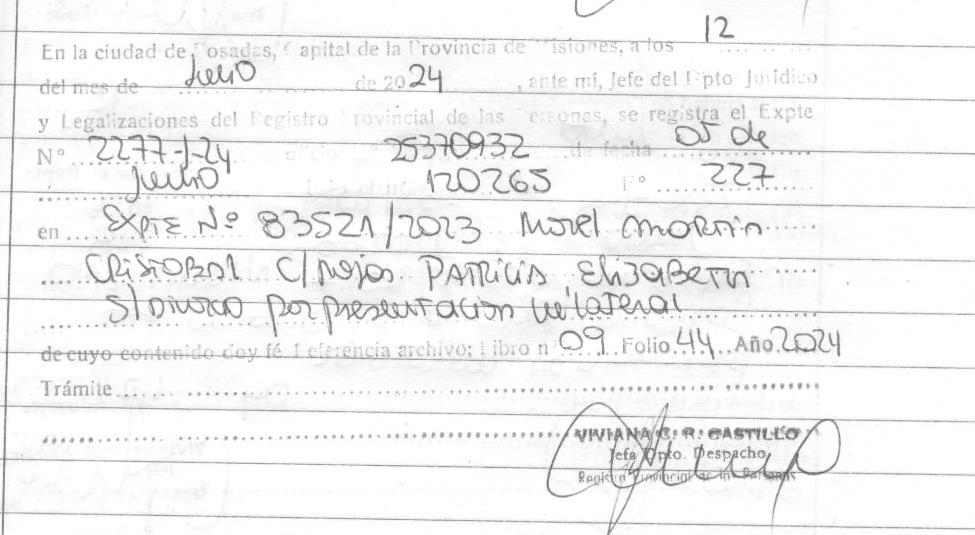 En la ciudad de Posadas, Capital de la Provincia de Misiones, a los 12
del mes de Julio de 2024, ante mí, Jefe del Dpto Jurídico
y Legalizaciones del Registro Provincial de las Personas, se registra el Expte
N° 2277-J-24 oficio 25370932 de fecha 05 de
Junio 120265 F° 227
en Expte Nº 83521/2023 Morel Martin
Cristobal C/ Patricia Elizabeth
S/Divorcio por presentacion unilateral
de cuyo contenido doy fé Referencia archivo: Libro n° 09 Folio 44 Año 2024
Trámite
VIVIANA C. R. CASTILLO
Jefa Dpto. Despacho
Registro Provincial de las Personas